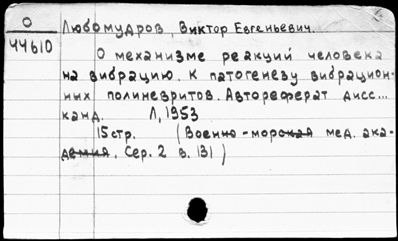 О
44610
Любомудров, Виктор Евгеньевич.
О механизме реакций человека
на вибрацию. К патогенезу вибрацион-
ных полиневритов. Автореферат дисс...
канд. Л, 1953
15 стр. (Военно-морская мед. ака-
демия. Сер. 2 в. 131)